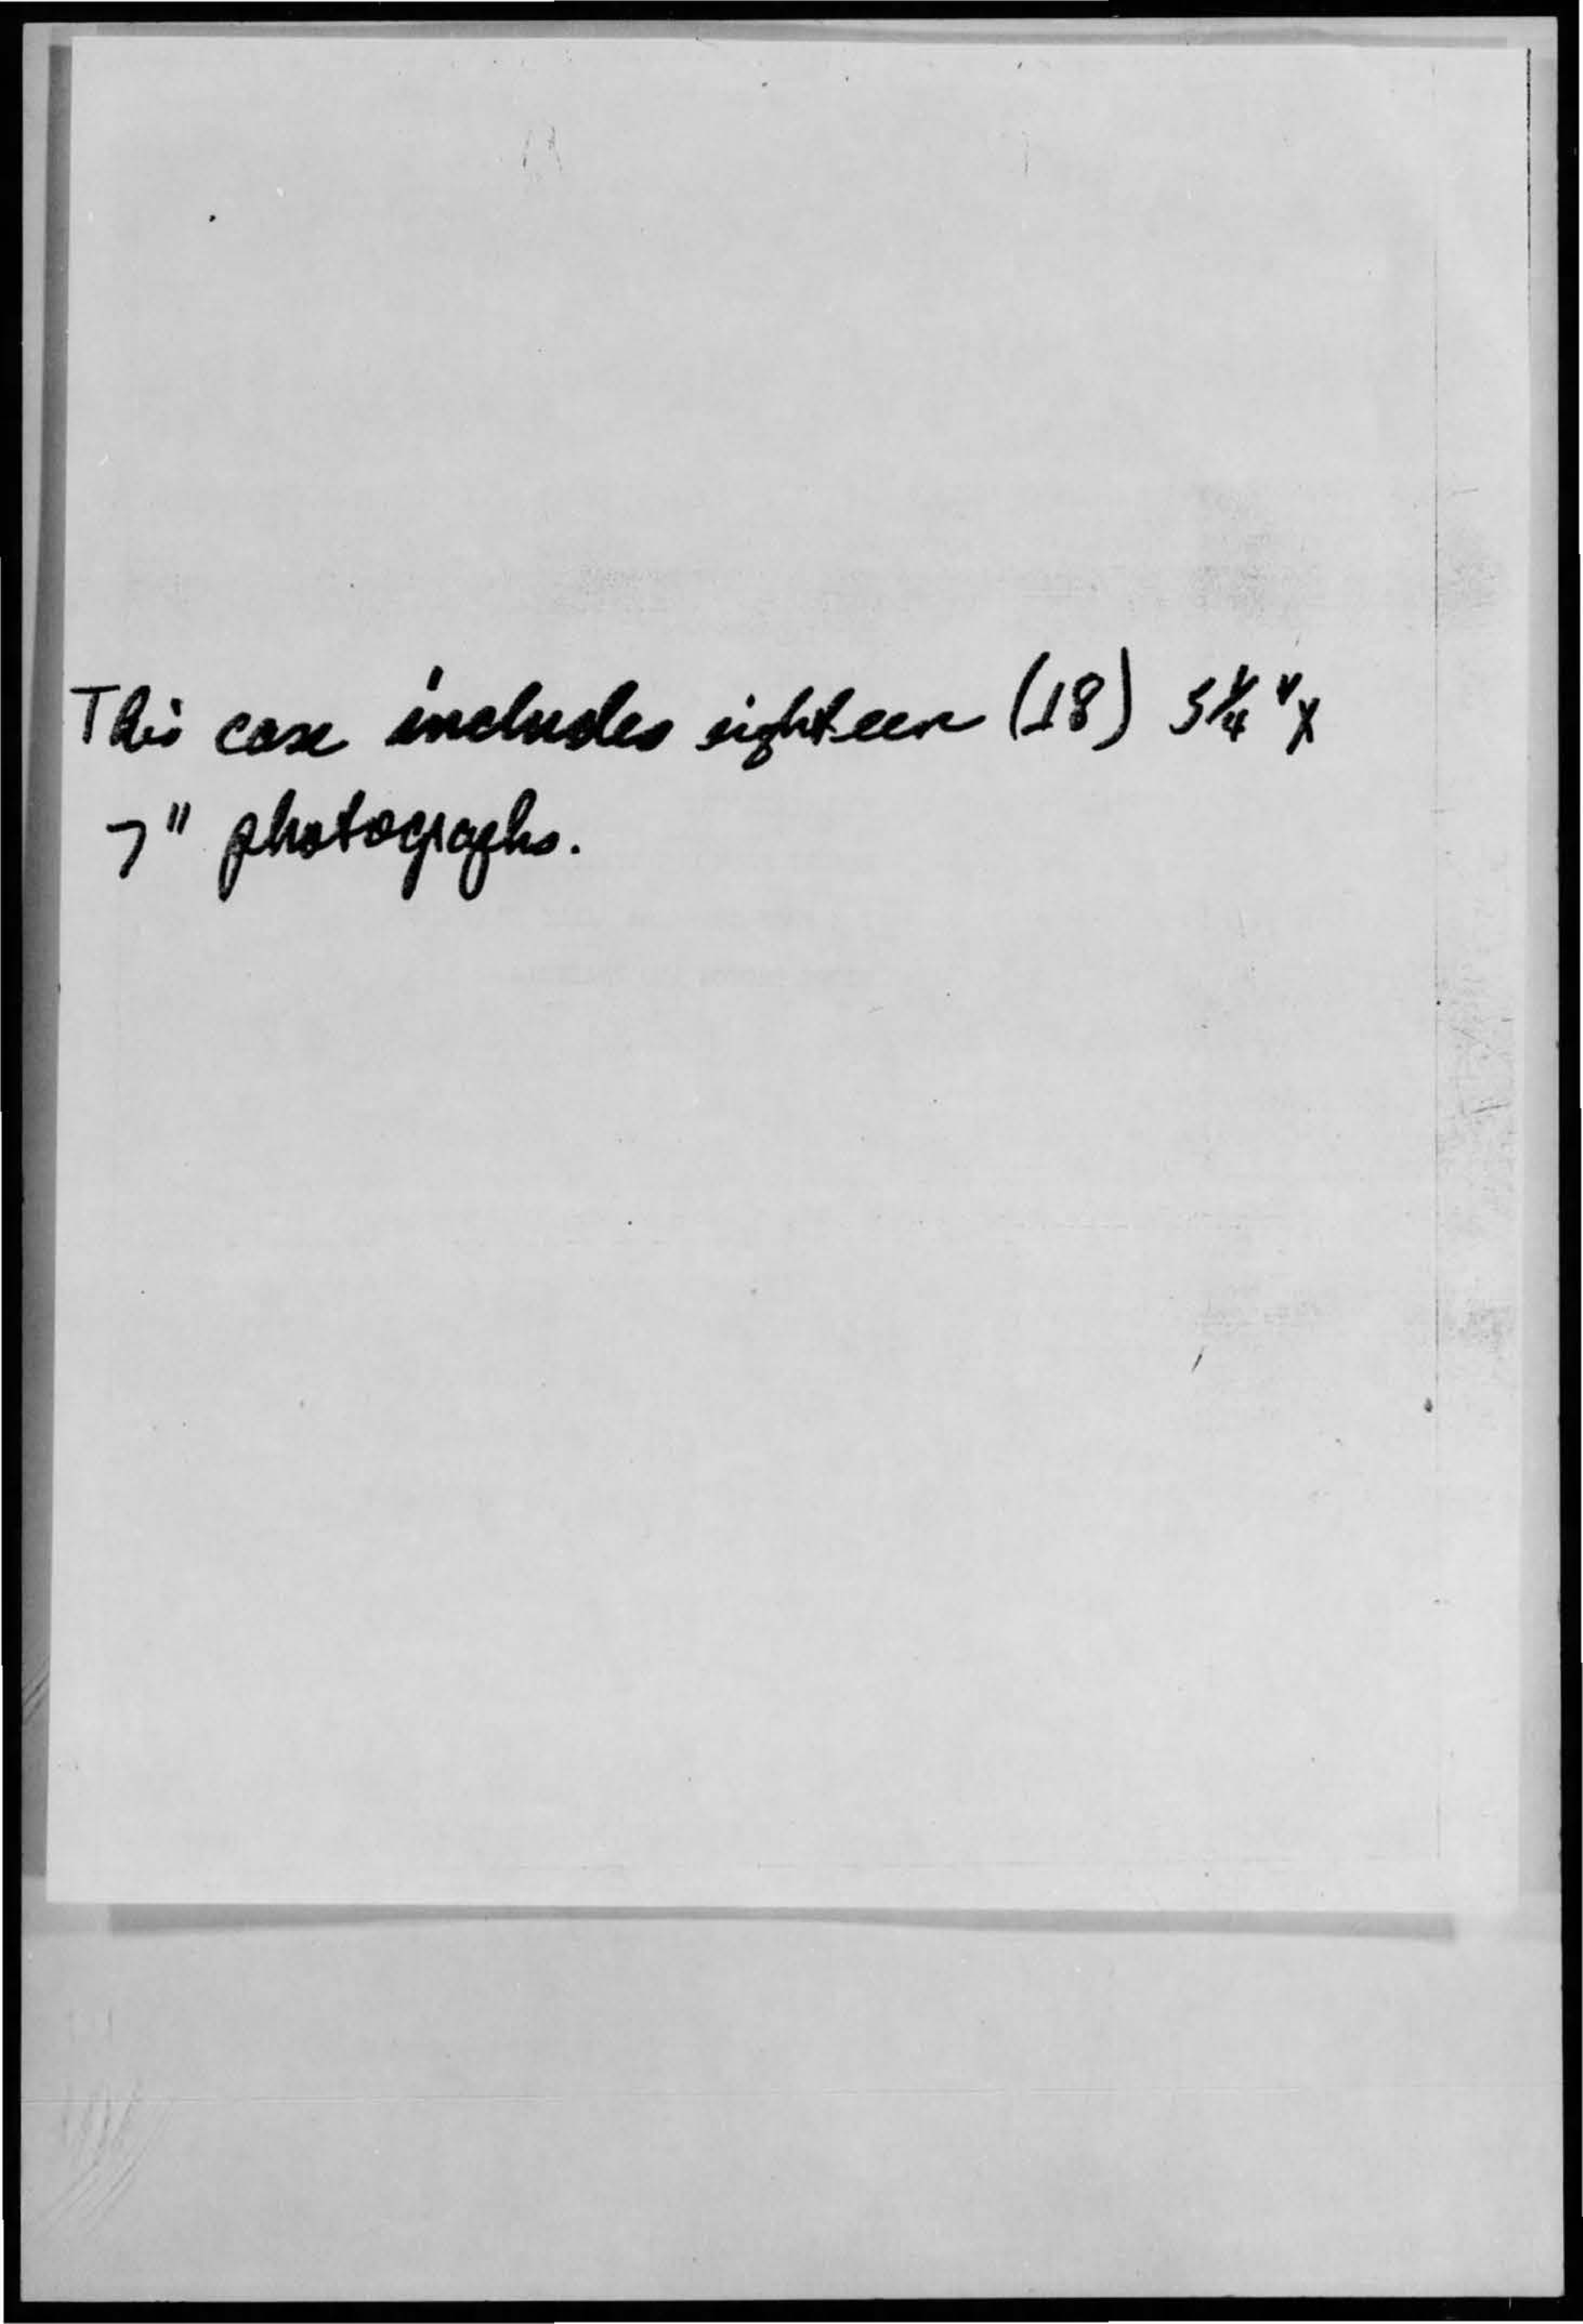 This case includes eighteen (18) 5¼" X
7" photographs.